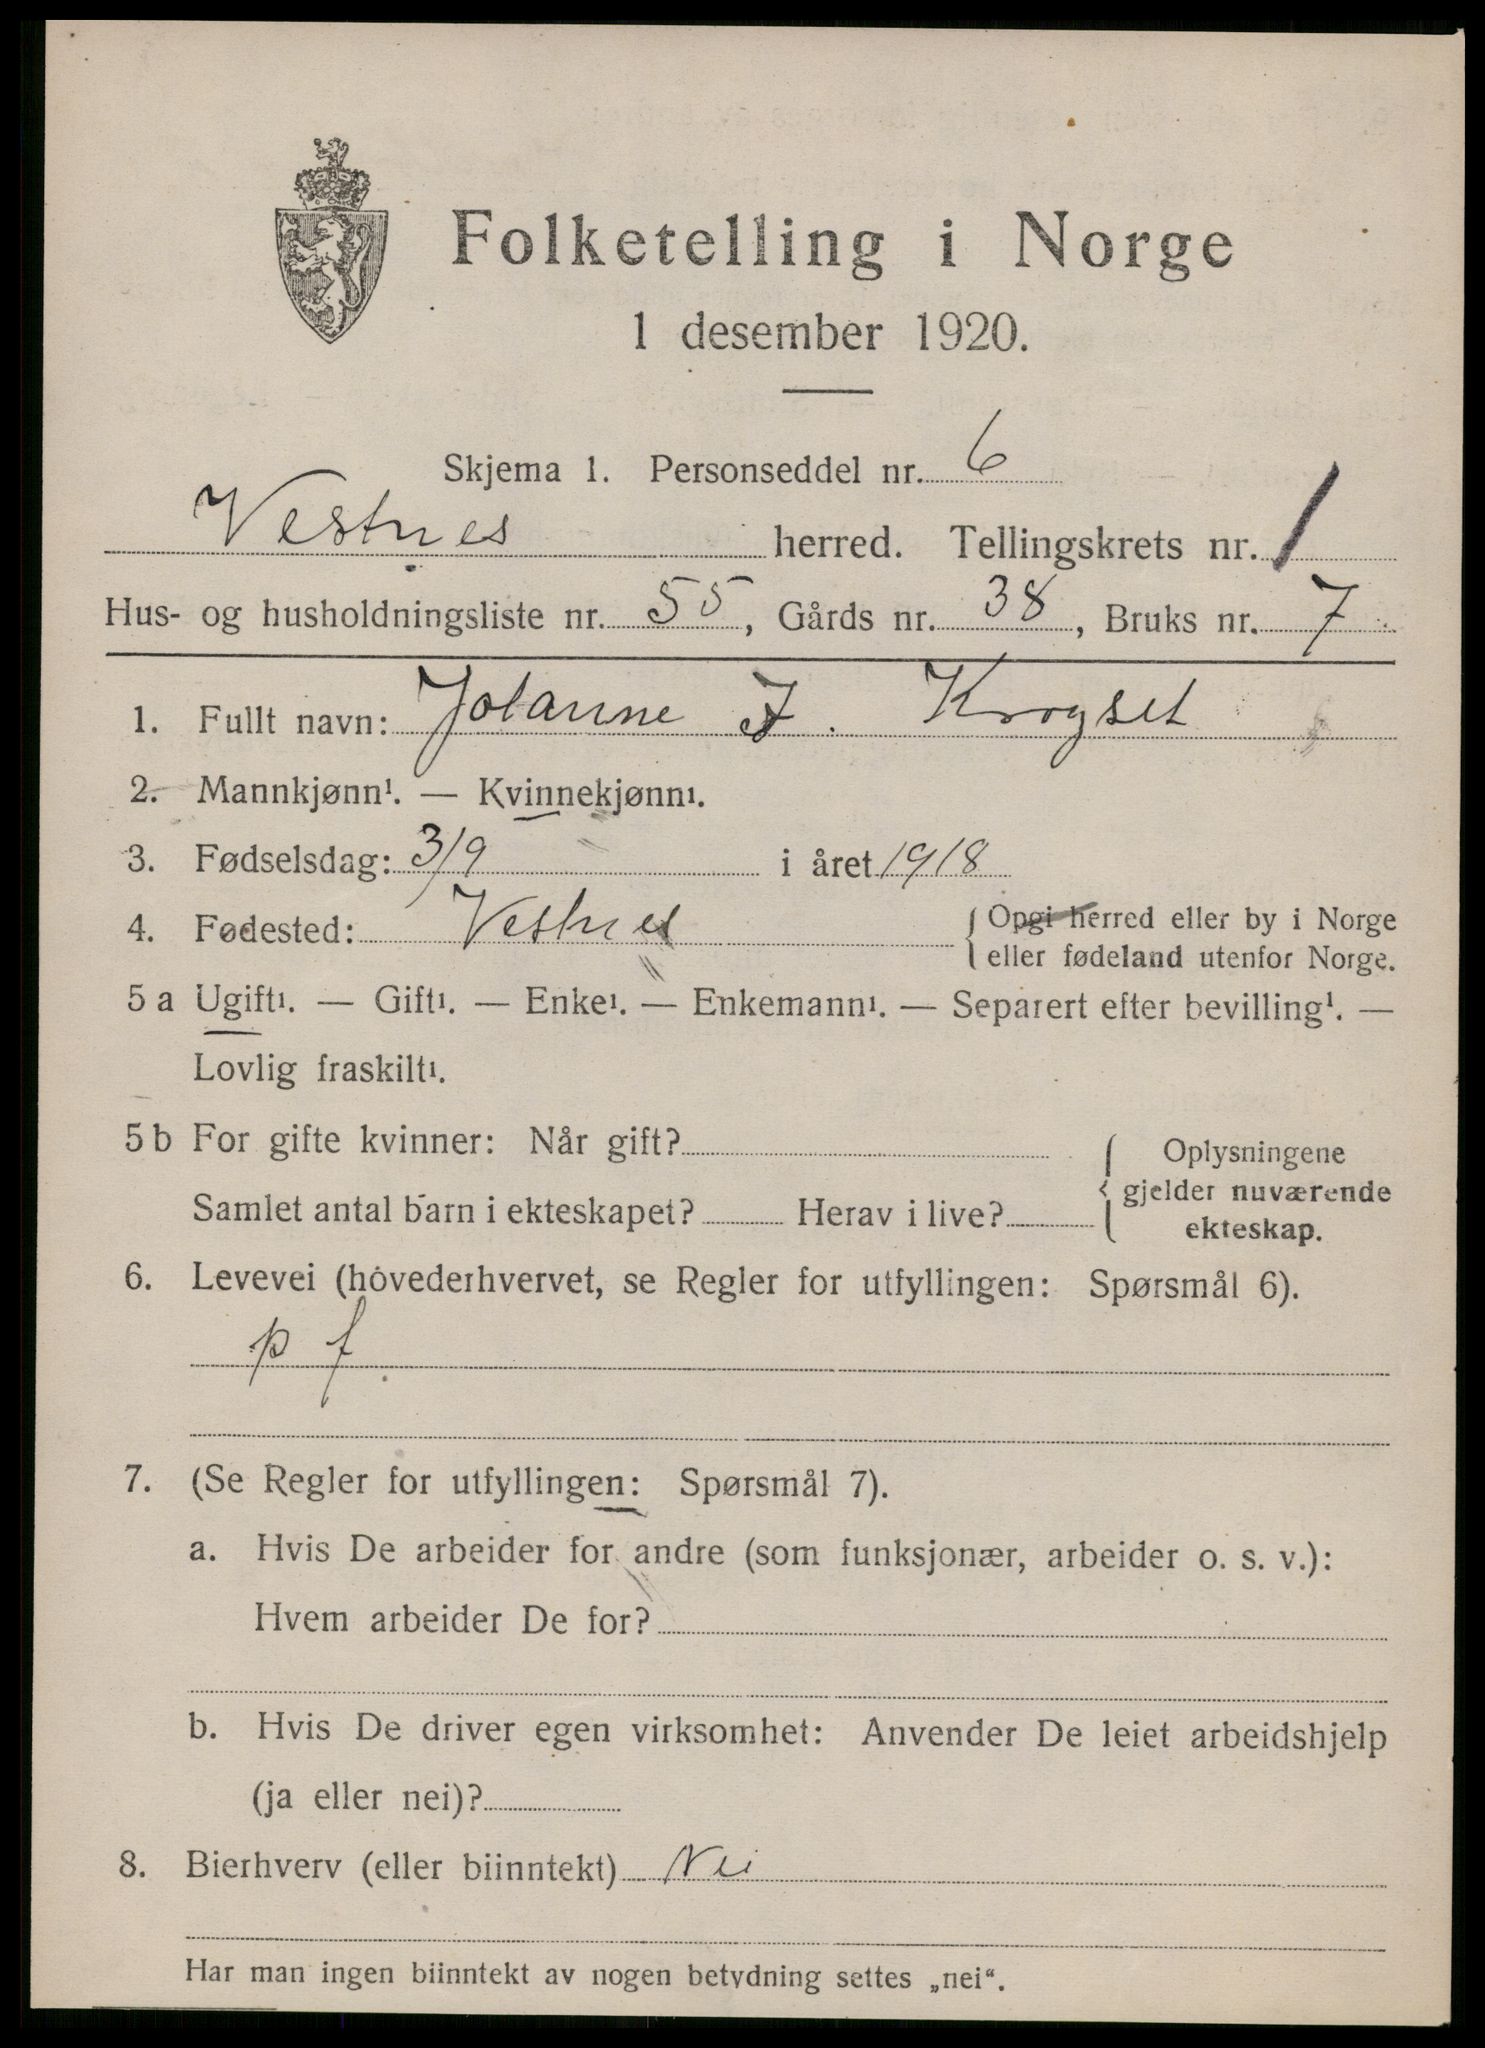 Folketelling i Norge
1 desember 1920.
Skjema 1. Personseddel nr. 6
Vestnes herred. Tellingskrets nr. 1
Hus- og husholdningsliste nr. 55, Gårds nr. 38, Bruks nr. 7
1. Fullt navn: Johanne J. Krogset
2. Mannkjønn¹. — Kvinnekjønn¹.
3. Fødselsdag: 3/9 i året 1918
4. Fødested: Vestnes { Opgi herred eller by i Norge
eller fødeland utenfor Norge.
5 a Ugift¹. — Gift¹. — Enke¹. — Enkemann¹. — Separert efter bevilling¹. —
Lovlig fraskilt¹.
5 b For gifte kvinner: Når gift? { Oplysningene
gjelder nuværende
Samlet antal barn i ekteskapet? Herav i live? ekteskap.
6. Levevei (hovederhvervet, se Regler for utfyllingen: Spørsmål 6).
p f
7. (Se Regler for utfyllingen: Spørsmål 7).
a. Hvis De arbeider for andre (som funksjonær, arbeider o. s. v.):
Hvem arbeider De for?
b. Hvis De driver egen virksomhet: Anvender De leiet arbeidshjelp
(ja eller nei)?
8. Bierhverv (eller biinntekt) Nei
Har man ingen biinntekt av nogen betydning settes „nei“.